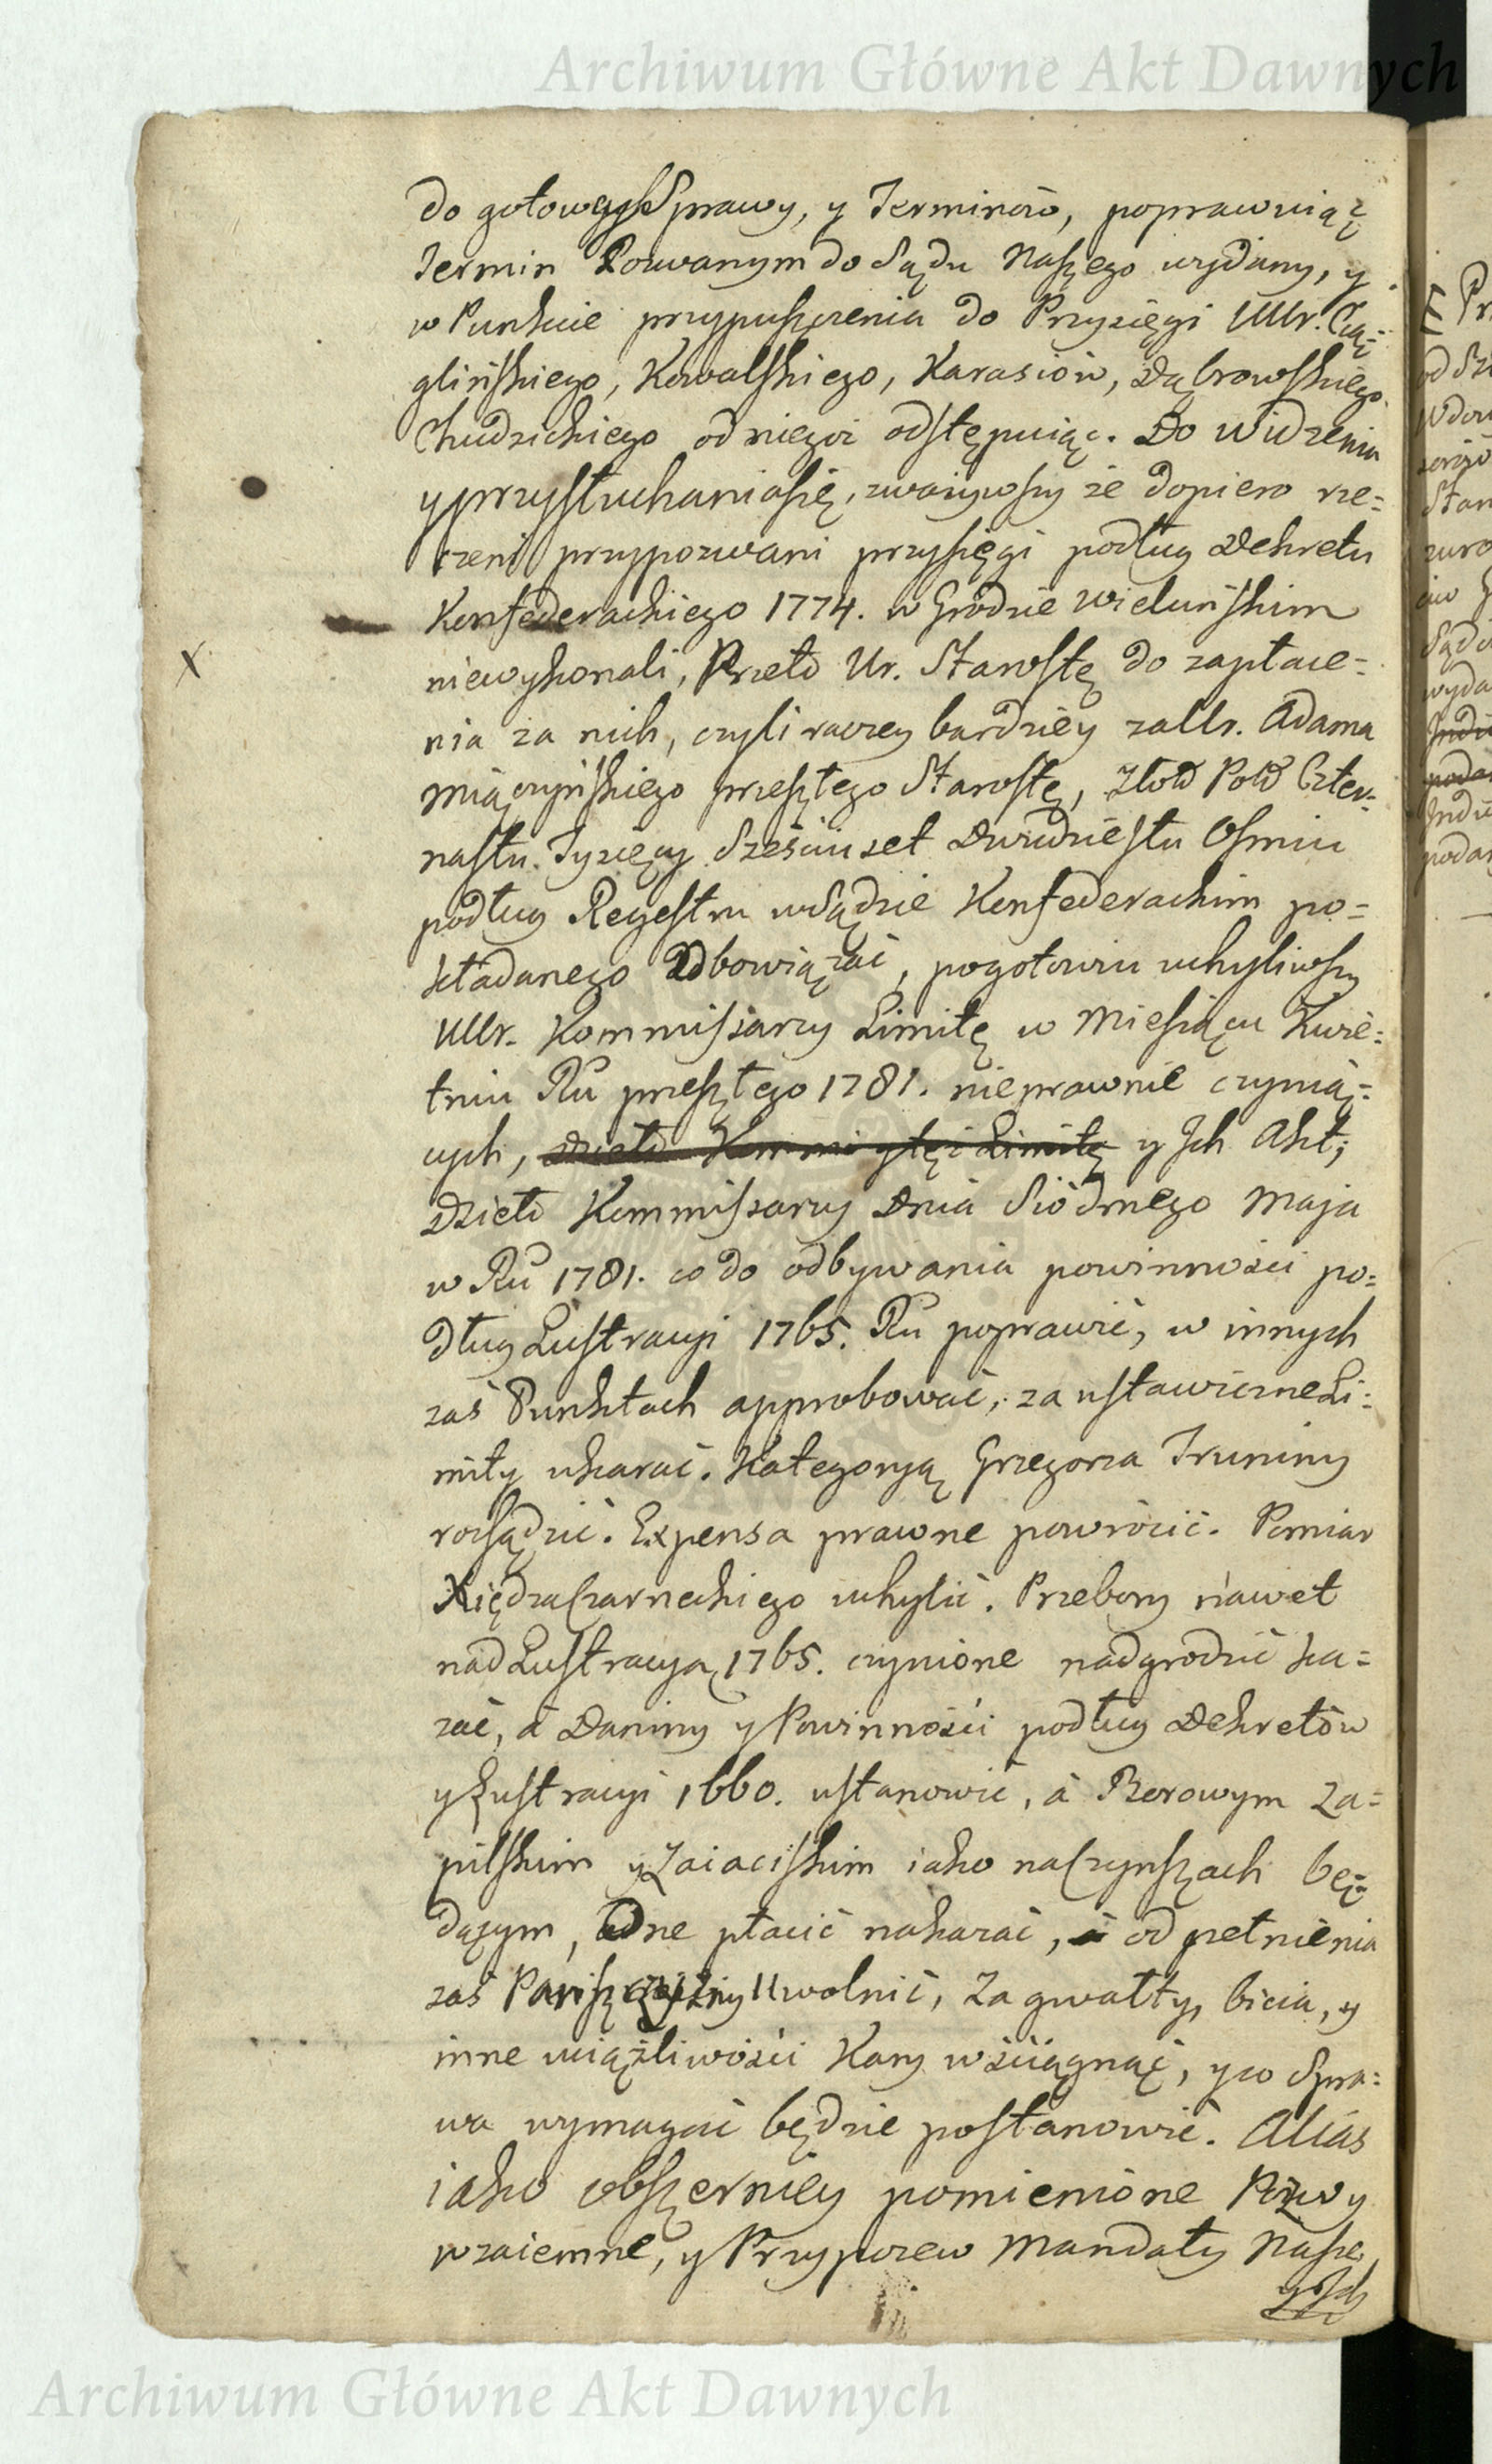 Archiwum Główne Akt Dawnych
do gotowey Sprawy, y Terminów, poprawuiąc
Termin Pozwanym do Sądu Naszego wydany, y
w Punkcie przypuszczenia do Przysięgi UUr.
glińskiego, Kowalskiego, Karasiów, Dąbrowskiego
Chudzickiego od niegoż odstępuiąc. Do Widzenia
y przysłuchania się, zważywszy że dopiero rze=
czeni przypozwani przysięgi podług Dekretu
Konfederackiego 1774. w Grodzie Wieluńskim
niewykonali, Przeto Ur. Starostę do zapłace=
nia za nich, czyli raczey bardziey za Ur. Adama
Miączyńskiego przeszłego Starostę, Złotł Polł Czter=
nastu Tysięcy Sześciuset Dwudziestu Osmiu
podług Regestru w Sądzie Konfederackim po=
kładanego Obowiązać, pogotowiu uchyliwszy
UUr. Kommissarzy Limitę w Miesiącu Kwie=
tniu Ru przeszłego 1781. nieprawnie czynią=
cych, y Ich Akt;
Dzieło Kommissarzy Dnia Siódmego Maja
w Ru 1781. co do odbywania powinności po=
dług Lustracyi 1765. Ru poprawić, w innych
zaś Punktach approbować, za ustawiczne Li=
mity ukarać. Kategoryą Grzegorza Truniny
rozsądzić. Expensa prawne powrócić. Pomiar
Xiędza Czarneckiego uchylić. Przebory nawet
nad Lustracyą 1765. czynione nadgrodzić ka=
zać, á Daniny y Powinności podług Dekretów
y Lustracyi 1660. ustanowić, á Borowym Za=
pilskim y Zaiaciskim iako na Czynszach bę=
dącym, One płacić nakazać, á od pełnienia
zaś Pańszczyzny Uwolnić, Za gwałty, bicia, y
inne uciążliwości Kary wściągnąć, y co Spra=
wa wymagać będzie postanowić. Alias
iako obszerniey pomienione Pozwy
wzaiemne, y Przypozew Mandaty Nasze,
y Ich
Archiwum Główne Akt Dawnych